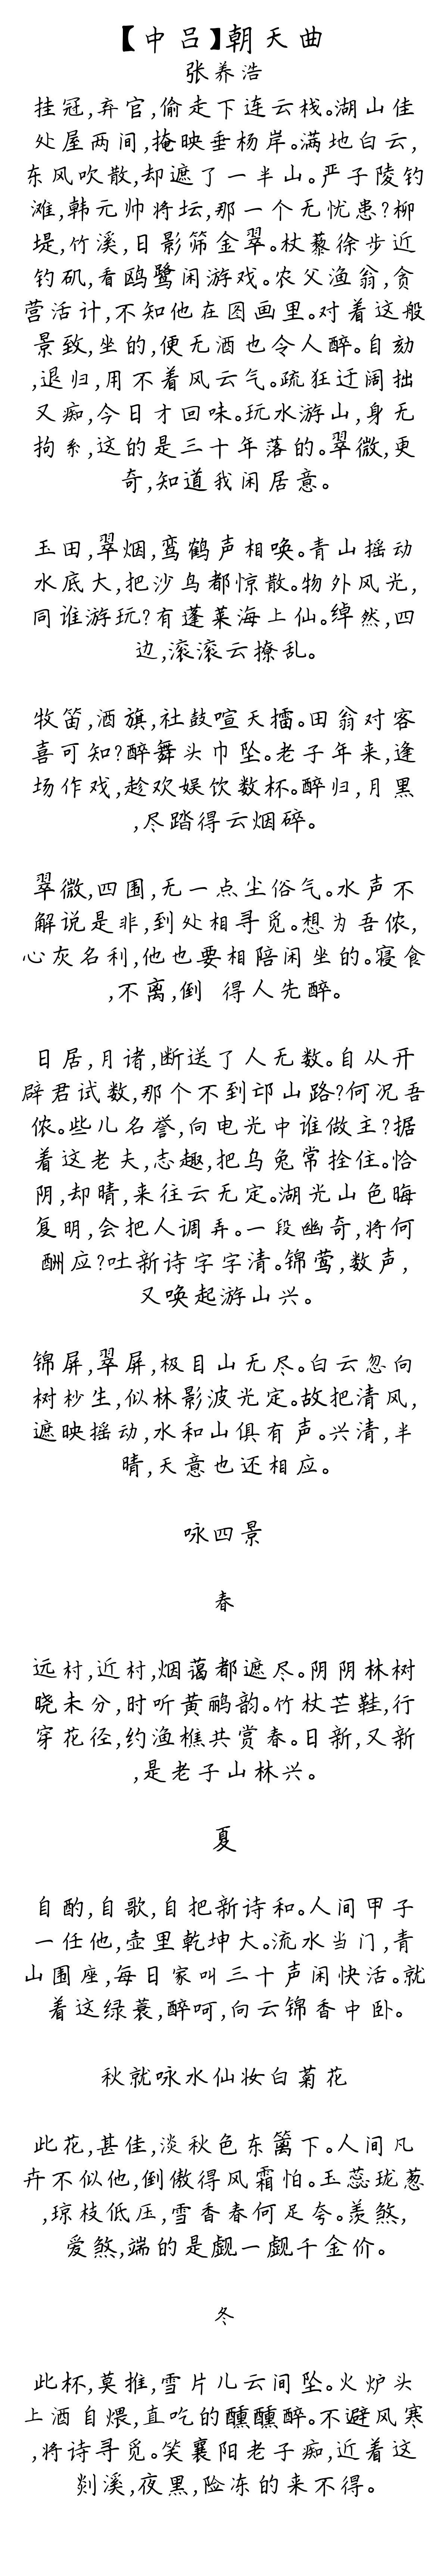 【中吕】朝天曲
张养浩
挂冠,弃官,偷走下连云栈。湖山佳
处屋两间,掩映垂杨岸。满地白云,
东风吹散,却遮了一半山。严子陵钓
滩,韩元帅将坛,那一个无忧患?柳
堤,竹溪,日影筛金翠。杖藜徐步近
钓矶,看鸥鹭闲游戏。农父渔翁,贪
营活计,不知他在图画里。对着这般
景致,坐的,便无酒也令人醉。自劾
,退归,用不着风云气。疏狂迂阔拙
又痴,今日才回味。玩水游山,身无
拘系,这的是三十年落的。翠微,更
奇,知道我闲居意。
玉田,翠烟,鸾鹤声相唤。青山摇动
水底天,把沙鸟都惊散。物外风光,
同谁游玩?有蓬莱海上仙。绰然,四
边,滚滚云撩乱。
牧笛,酒旗,社鼓喧天擂。田翁对客
喜可知?醉舞头巾坠。老子年来,逢
场作戏,趁欢娱饮数杯。醉归,月黑
,尽踏得云烟碎。
翠微,四围,无一点尘俗气。水声不
解说是非,到处相寻觅。想为吾侬,
心灰名利,他也要相陪闲坐的。寝食
,不离,倒 得人先醉。
日居,月诸,断送了人无数。自从开
辟君试数,那个不到邙山路?何况吾
侬。些儿名誉,向电光中谁做主?据
着这老夫,志趣,把乌兔常拴住。恰
阴,却晴,来往云无定。湖光山色晦
复明,会把人调弄。一段幽奇,将何
酬应?吐新诗字字清。锦莺,数声,
又唤起游山兴。
锦屏,翠屏,极目山无尽。白云忽向
树杪生,似林影波光定。故把清风,
遮映摇动,水和山俱有声。兴清,半
晴,天意也还相应。
咏四景
春
远村,近村,烟蔼都遮尽。阴阴林树
晓未分,时听黄鹂韵。竹杖芒鞋,行
穿花径,约渔樵共赏春。日新,又新
,是老子山林兴。
夏
自酌,自歌,自把新诗和。人间甲子
一任他,壶里乾坤大。流水当门,青
山围座,每日家叫三十声闲快活。就
着这绿蓑,醉呵,向云锦香中卧。
秋就咏水仙妆白菊花
此花,甚佳,淡秋色东篱下。人间凡
卉不似他,倒傲得风霜怕。玉蕊珑葱
,琼枝低压,雪香春何足夸。羡煞,
爱煞,端的是觑一觑千金价。
冬
此杯,莫推,雪片儿云间坠。火炉头
上酒自煨,直吃的醺醺醉。不避风寒
,将诗寻觅。笑襄阳老子痴,近着这
剡溪,夜黑,险冻的来不得。